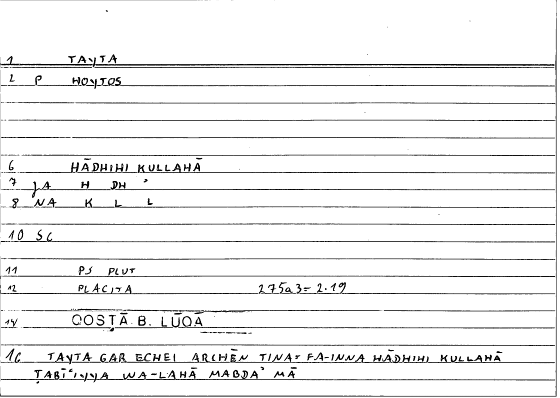 1 TAYTA
2 P HOYTOS
6 HĀDHIHI KULLAHĀ
7 JA H DH ʾ
8 NA K L L
10 SC
11 PS PLUT
12 PLACITA 275a3=2.19
14 QOSṬĀ.B. LŪQĀ
16 TAYTA GAR ECHEI ARCHĒN TINA= FA-INNA HĀDHIHI KULLAHĀ
ṬABĪʿIYYA WA-LAHĀ MABDAʾ MĀ